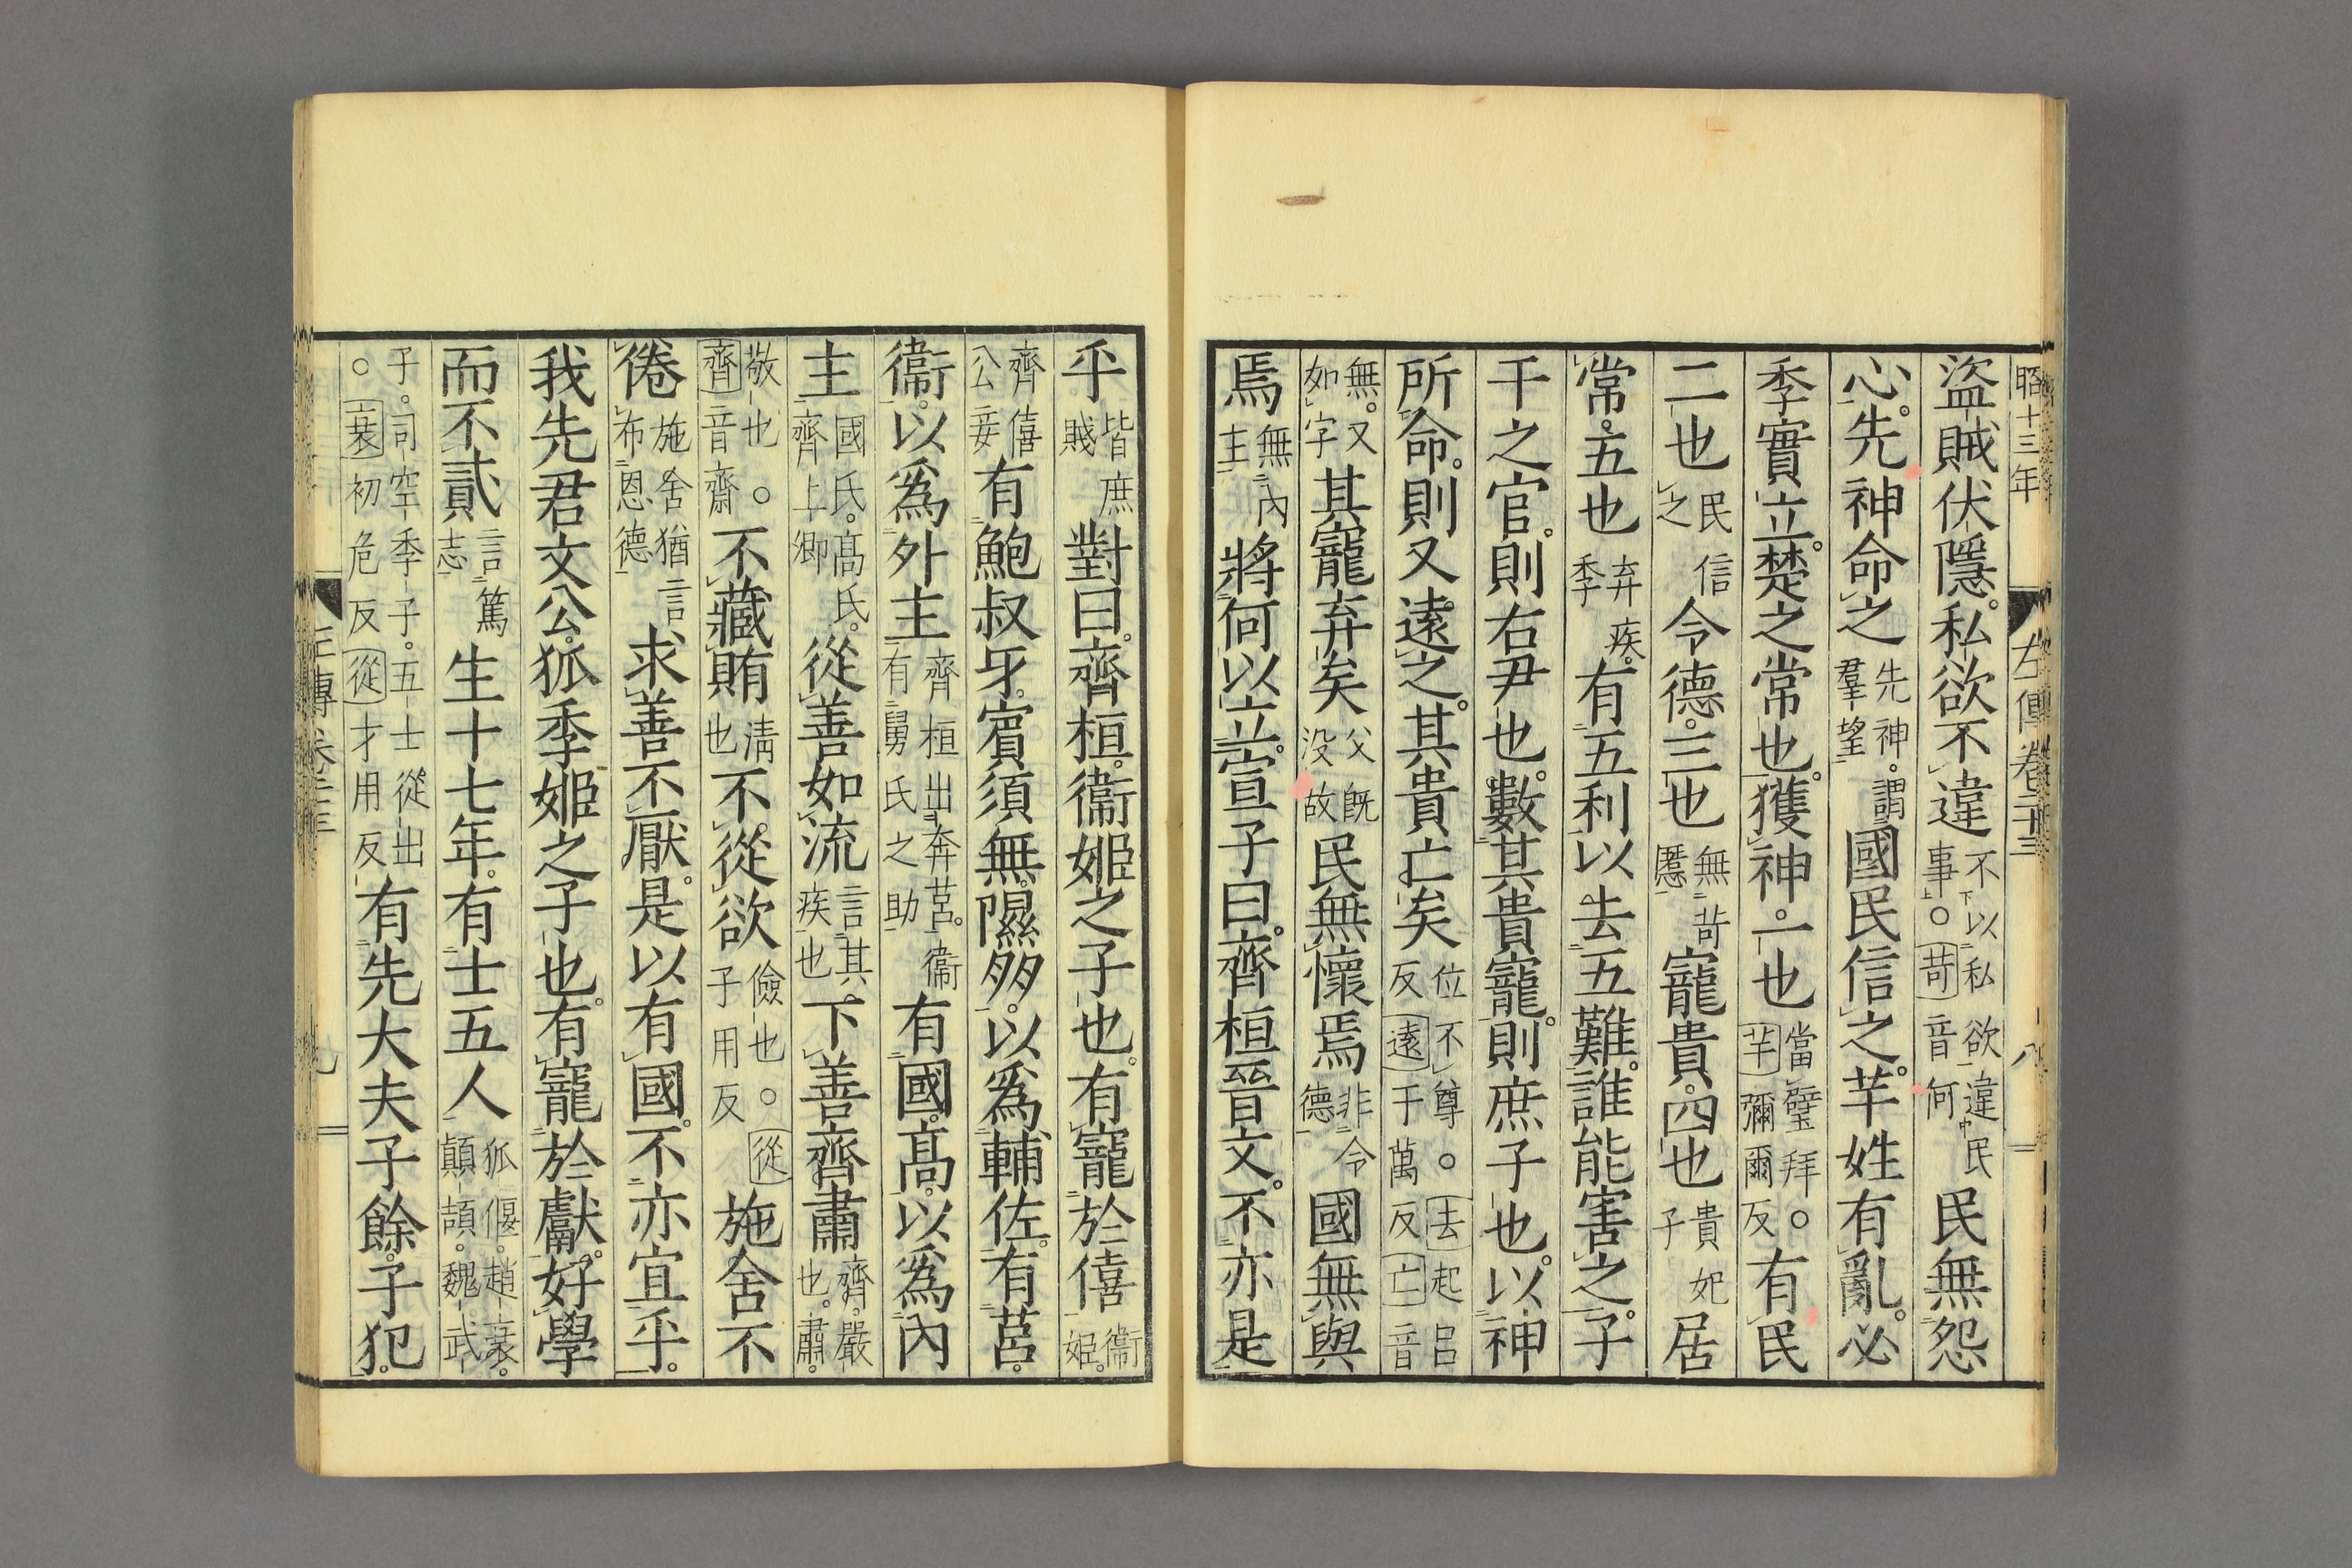 昭十三年 左傳卷二十三 八
盜賊伏隱。私欲不違不以私欲違民事。○苛音何民無怨
心。先神命之先神。謂羣望國民信之。芈姓有亂。必
季實立。楚之常也。獲神。一也當璧拜。○芈彌爾反有民
二也民信之令德。三也無苛慝寵貴。四也貴妃子居
常。五也弃疾。季有五利以去五難。誰能害之。子
干之官。則右尹也。數其貴寵。則庶子也。以神
所命。則又遠之。其貴亡矣位不尊。○去起呂反遠于萬反亡音
無。又如字其寵弃矣父既没故民無懷焉非令德國無與
焉無內主將何以立。宣子曰。齊桓晉文。不亦是
乎皆庶賤對曰。齊桓。衞姬之子也。有寵於僖衞姬。
齊僖公妾有鮑叔牙。賓須無。隰朋。以爲輔佐。有莒。
衞。以爲外主齊桓出奔莒。衞有舅氏之助有國。高。以爲內
主國氏。高氏。齊上卿從善如流言其疾也下善齊肅齊。嚴也。肅。
敬也。○齊音齋不藏賄淸也不從欲儉也。○從子用反施舍不
倦施舍猶言布恩德求善不厭。是以有國。不亦宜乎。
我先君文公。狐季姬之子也。有寵於獻。好學
而不貳言篤志生十七年。有士五人狐偃。趙衰。顛頡。魏武
子。司空季子。五士從出○衰初危反從才用反有先大夫子餘。子犯。
左傳卷二十三 九